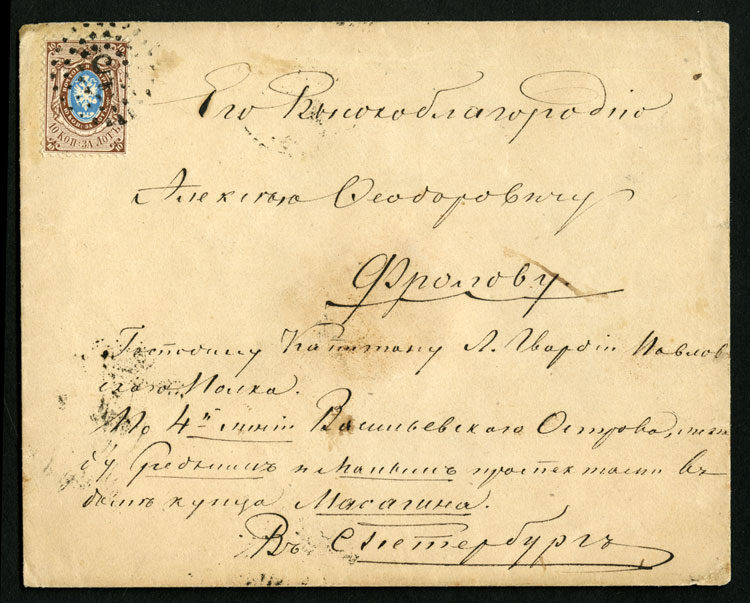 10 КОП: ЗА ЛОТЪ
Его Высокоблагородію
Алексѣю Ѳеодоровичу
Фролову.
Господину Капитану Л. Гвардіи Павлов
скаго Полка.
По 4й линіи Васильевскаго Острова, меж
ду Среднимъ и Малымъ проспектами въ
домѣ купца Масагина.
Въ С Петербургѣ